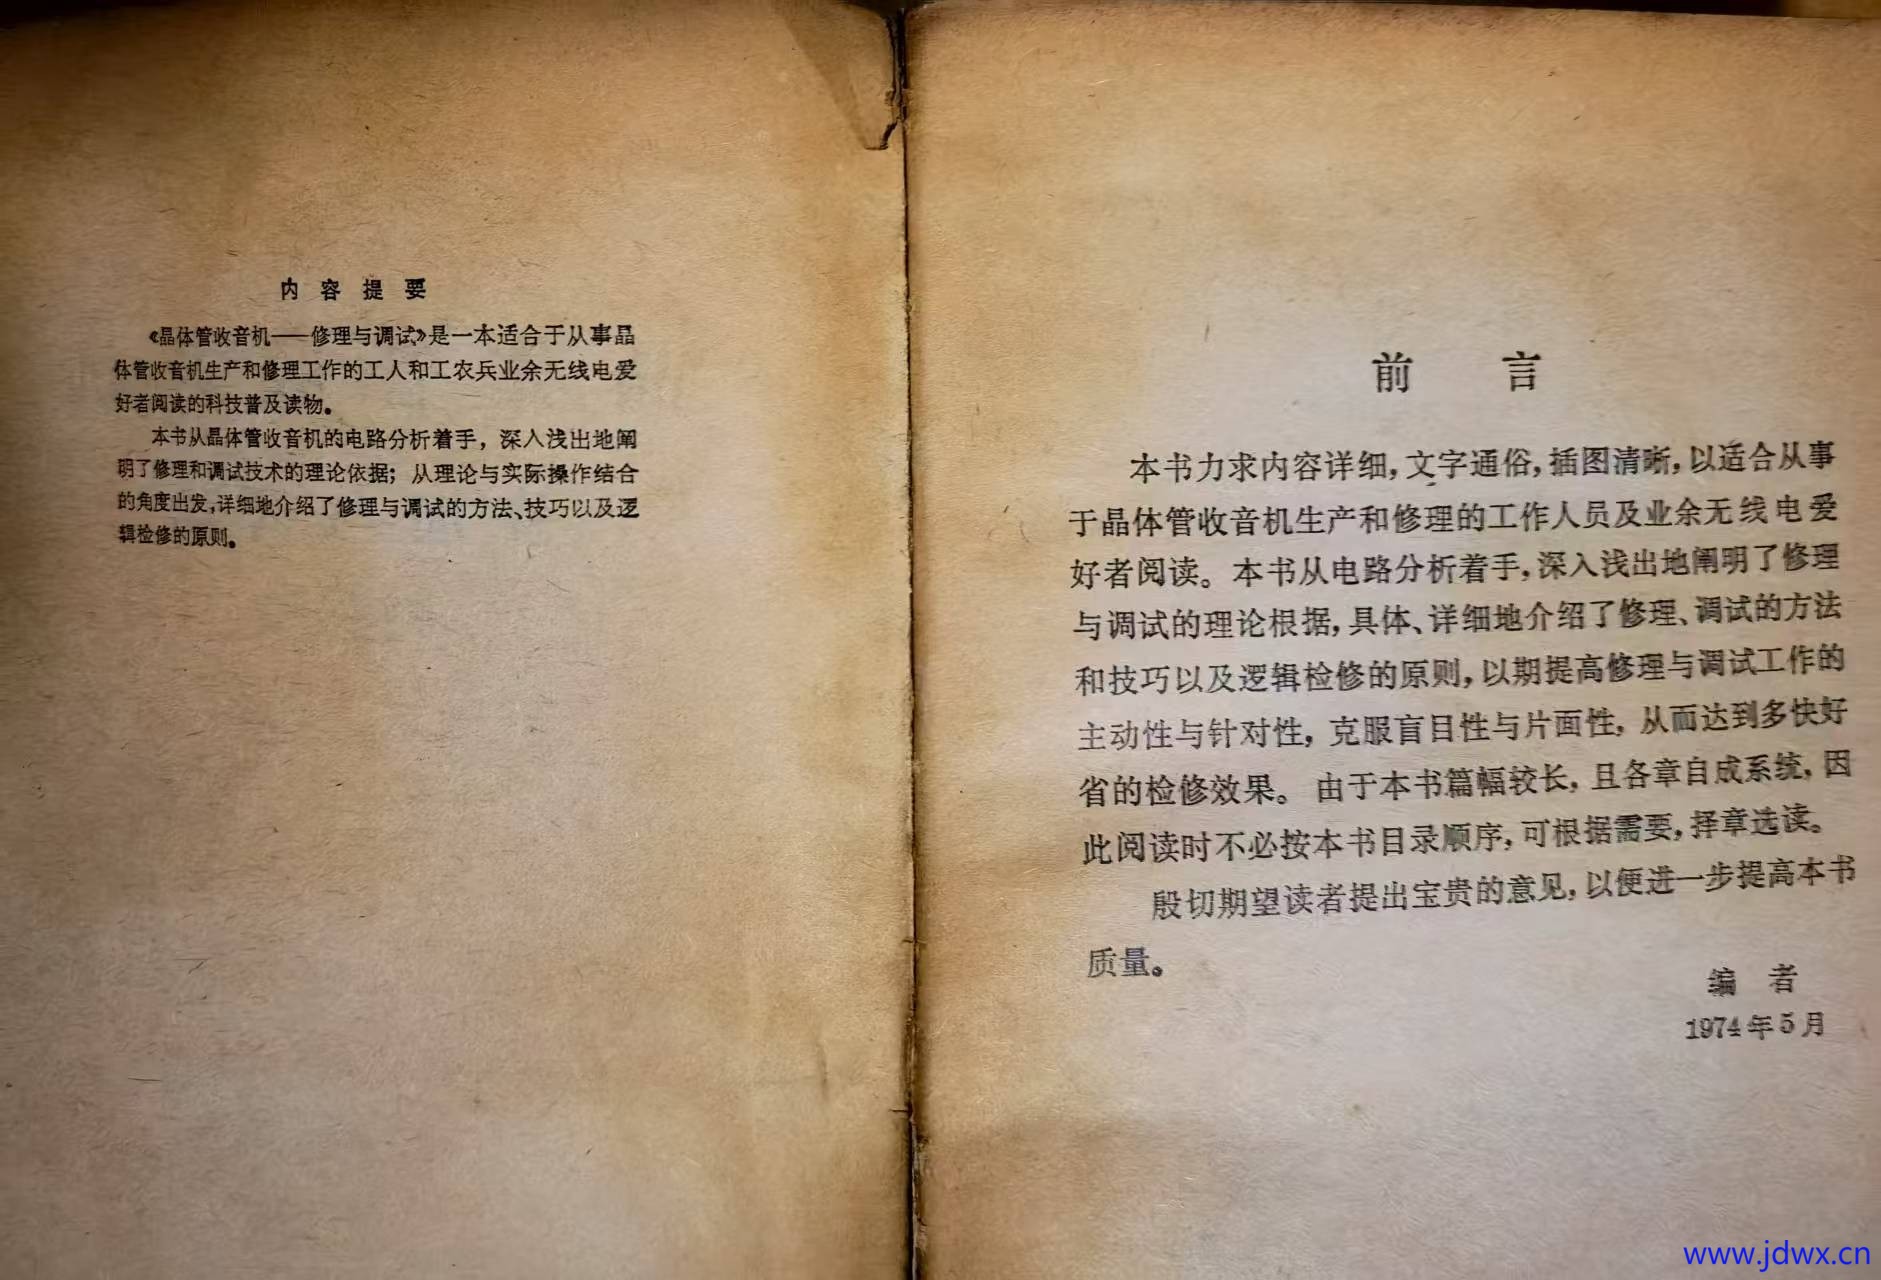 内容提要
《晶体管收音机——修理与调试》是一本适合于从事晶
体管收音机生产和修理工作的工人和工农兵业余无线电爱
好者阅读的科技普及读物。
本书从晶体管收音机的电路分析着手，深入浅出地阐
明了修理和调试技术的理论依据；从理论与实际操作结合
的角度出发，详细地介绍了修理与调试的方法、技巧以及逻
辑检修的原则。
前言
本书力求内容详细，文字通俗，插图清晰，以适合从事
于晶体管收音机生产和修理的工作人员及业余无线电爱
好者阅读。本书从电路分析着手，深入浅出地阐明了修理
与调试的理论根据，具体、详细地介绍了修理、调试的方法
和技巧以及逻辑检修的原则，以期提高修理与调试工作的
主动性与针对性，克服盲目性与片面性，从而达到多快好
省的检修效果。由于本书篇幅较长，且各章自成系统，因
此阅读时不必按本书目录顺序，可根据需要，择章选读。
殷切期望读者提出宝贵的意见，以便进一步提高本书
质量。
编者
1974年5月
www.jdwx.cn